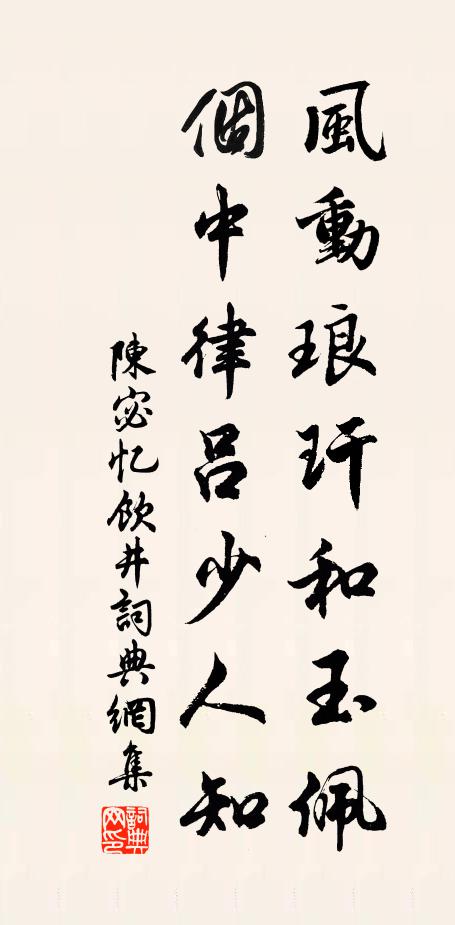 風動琅玕和玉佩
個中律呂少人知
陳宓忆飲井詞典網集
詞典網印